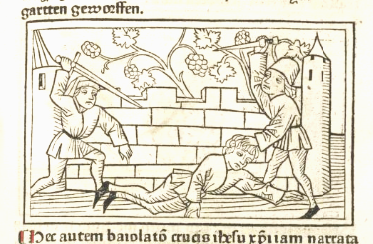 gartten geworffen.
Hec autem baiolatō crucis ihesu xp̄i iam narrata